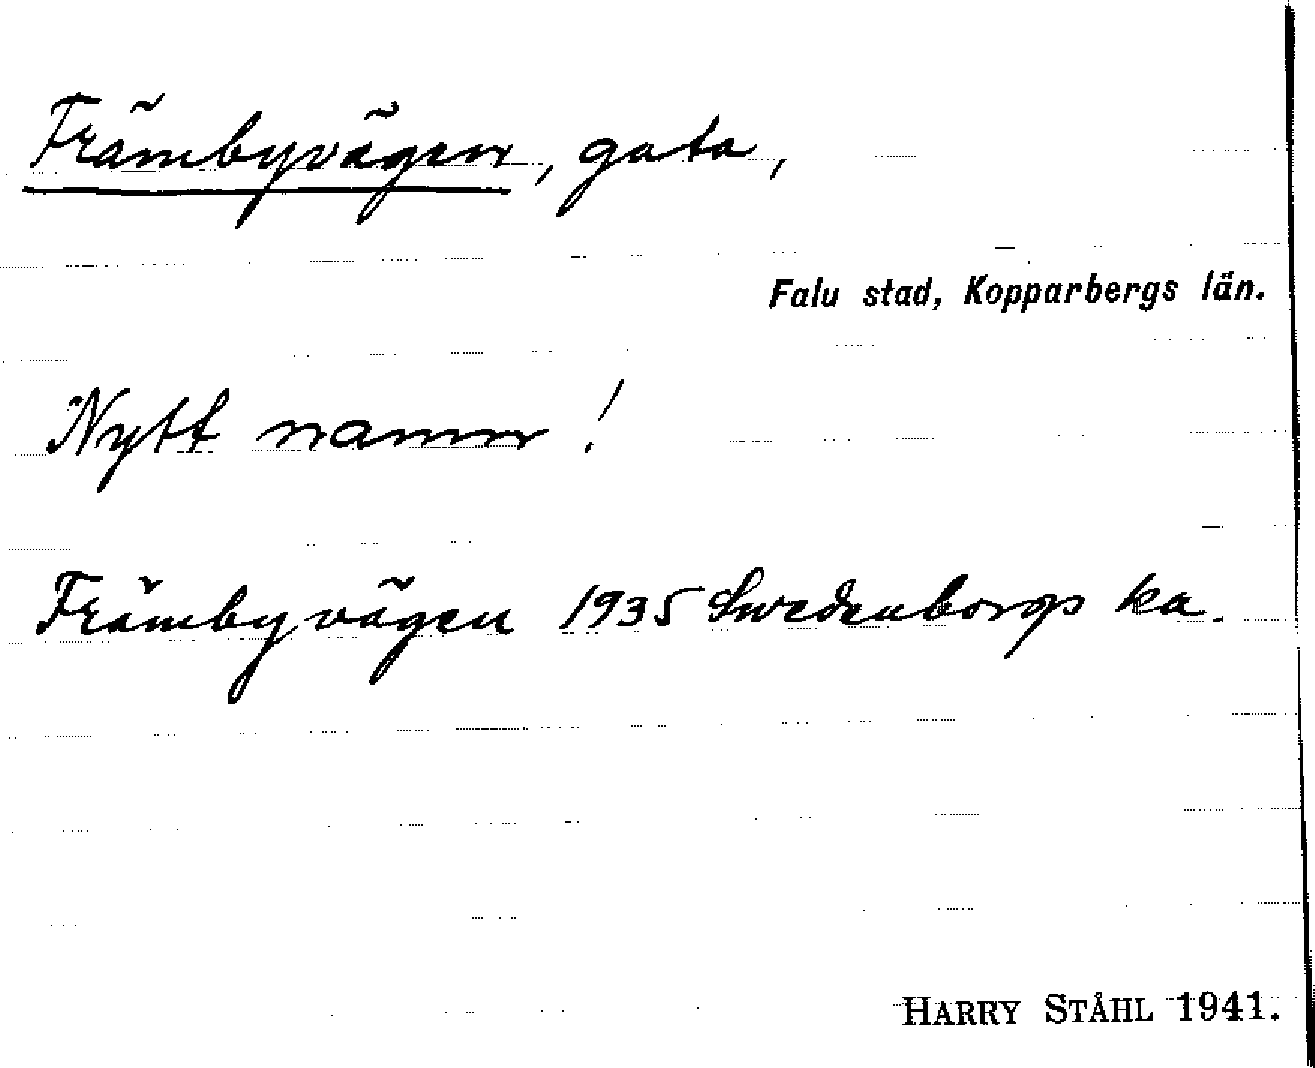 Främbyvägen, gata,
Falu stad, Kopparbergs län.
Nytt namn!
Främbyvägen 1935 Swedenborgs ka.
HARRY STÅHL 1941.